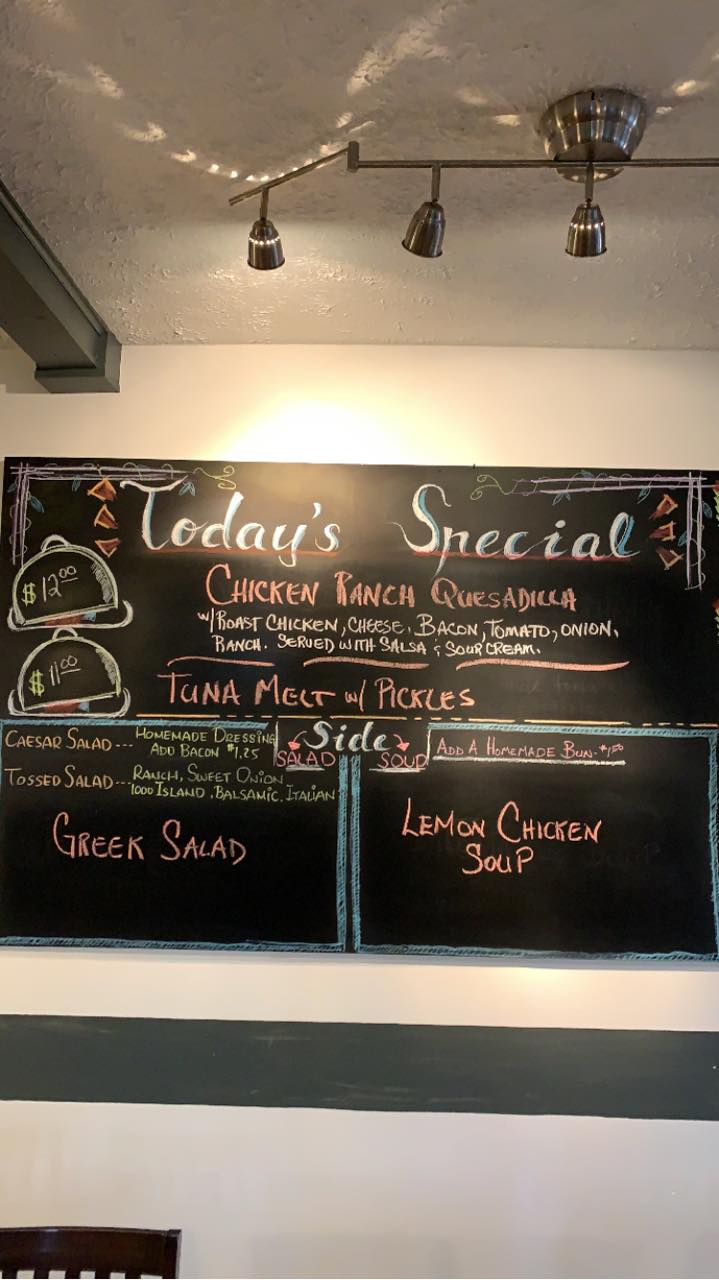 Today's Special
$12.00
CHICKEN RANCH QUESADILLA
W/ ROAST CHICKEN, CHEESE, BACON, TOMATO, ONION,
RANCH. SERVED WITH SALSA & SOUR CREAM.
$11.00
TUNA MELT W/ PICKLES
Side
SALAD
SOUP
CAESAR SALAD --- HOMEMADE DRESSING
ADD BACON $1.25
TOSSED SALAD --- RANCH, SWEET ONION
1000 ISLAND, BALSAMIC, ITALIAN
GREEK SALAD
ADD A HOMEMADE BUN
LEMON CHICKEN
SOUP